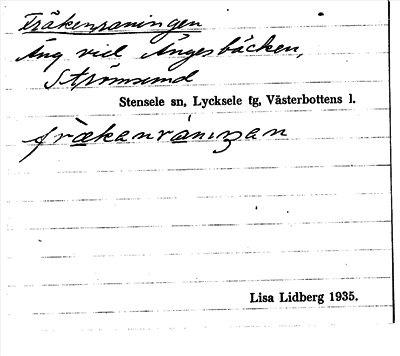 Fräkenraningen
Äng vid Ängesbäcken,
Strömsund
Stensele sn, Lycksele tg, Västerbottens l.
frækanránıŋan
Lisa Lidberg 1935.